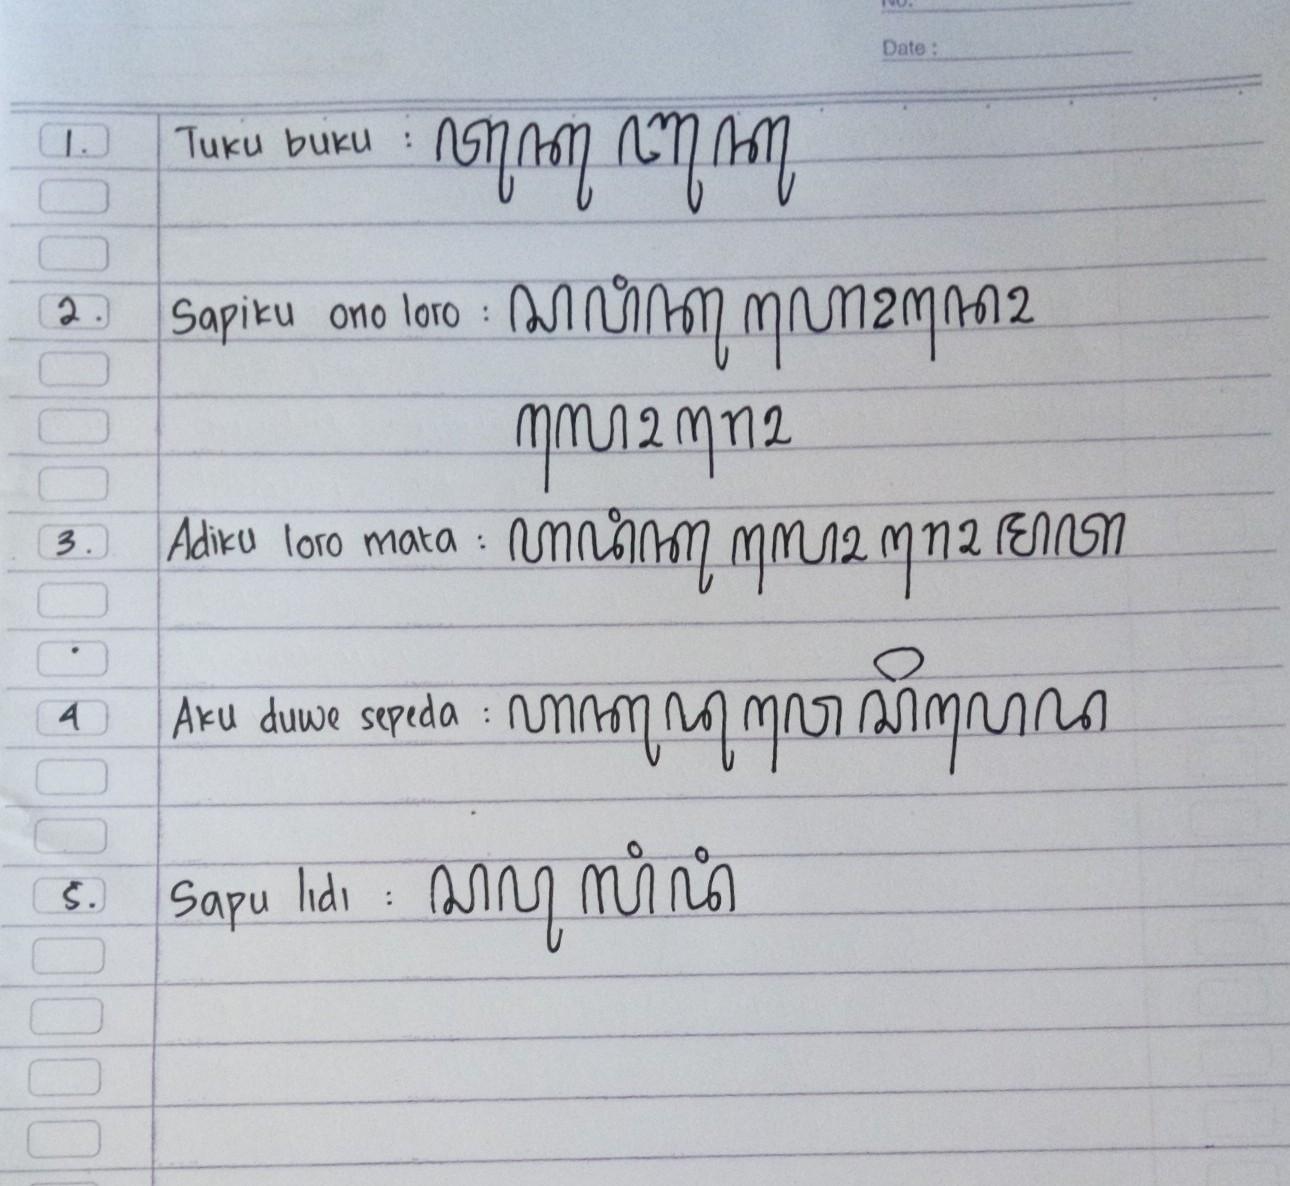 No.
Date :
1. Tuku buku : ꦠꦸꦏꦸ ꦧꦸꦏꦸ
2. Sapiku ono loro : ꦱꦥꦶꦏꦸ ꦲꦺꦴꦤꦺꦴ
ꦭꦺꦴꦫꦺꦴ
3. Adiku loro mata : ꦲꦢꦶꦏꦸ ꦭꦺꦴꦫꦺꦴ ꦩꦠ
4 Aku duwe sepeda : ꦲꦏꦸ ꦢꦸꦮꦺ ꦱꦼꦥꦺꦢ
5. Sapu lidi : ꦱꦥꦸ ꦭꦶꦢꦶ